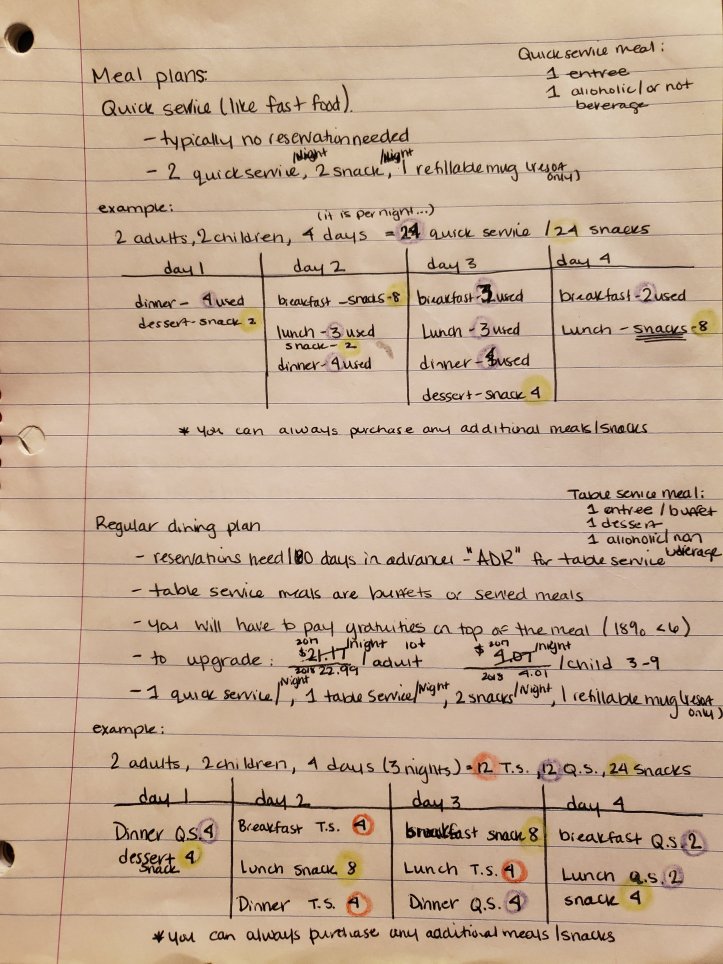 Quick service meal:
1 entree
1 alcoholic/or not
beverage
Meal plans:
Quick service (like fast food).
- typically no reservation needed
- 2 quick service/Night, 2 snack/Night, 1 refillable mug (resort only)
example:
(it is per night...)
2 adults, 2 children, 4 days = 24 quick service / 24 snacks
day 1 day 2 day 3 day 4
dinner - 4 used breakfast - snacks - 8 breakfast - 3 used breakfast - 2 used
dessert - snack 2 lunch - 3 used Lunch - 3 used Lunch - snacks - 8
snack - 2
dinner - 4 used dinner - used
dessert - snack 4
* you can always purchase any additional meals/snacks
Table service meal:
1 entree / buffet
1 dessert
1 alcoholic/non
beverage
Regular dining plan
- reservations need 180 days in advance - "ADR" for table service
- table service meals are buffets or served meals
- you will have to pay gratuities on top of the meal (18% <6)
- to upgrade: 2017 $21.17/night 2018 22.99 / adult 10+ 2017 $4.07/night 2018 4.01 / child 3-9
- 1 quick service/Night, 1 table service/Night, 2 snacks/Night, 1 refillable mug (resort only)
example:
2 adults, 2 children, 4 days (3 nights) = 12 T.S., 12 Q.S., 24 snacks
day 1 day 2 day 3 day 4
Dinner Q.S. 4 Breakfast T.S. 4 breakfast snack 8 breakfast Q.S. 2
dessert snack 4 Lunch snack 8 Lunch T.S. 4 Lunch Q.S. 2
Dinner T.S. 4 Dinner Q.S. 4 snack 4
* you can always purchase any additional meals / snacks